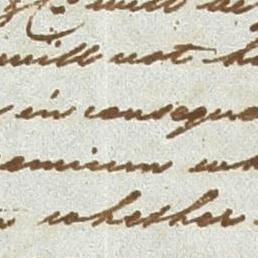 will be
will not
in conseque
emium wh
whether